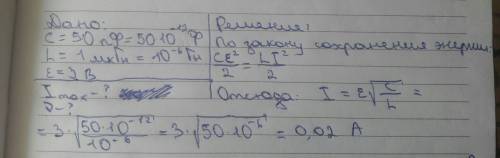 Дано:
C = 50 пФ = 50·10⁻¹² Ф
L = 1 мкГн = 10⁻⁶ Гн
ε = 3 В
I max - ?
Решение:
По закону сохранения энергии:
Cε²/2 = LI²/2
Отсюда: I = ε√(C/L) =
= 3·√(50·10⁻¹²/10⁻⁶) = 3·√(50·10⁻⁶) = 0,02 А